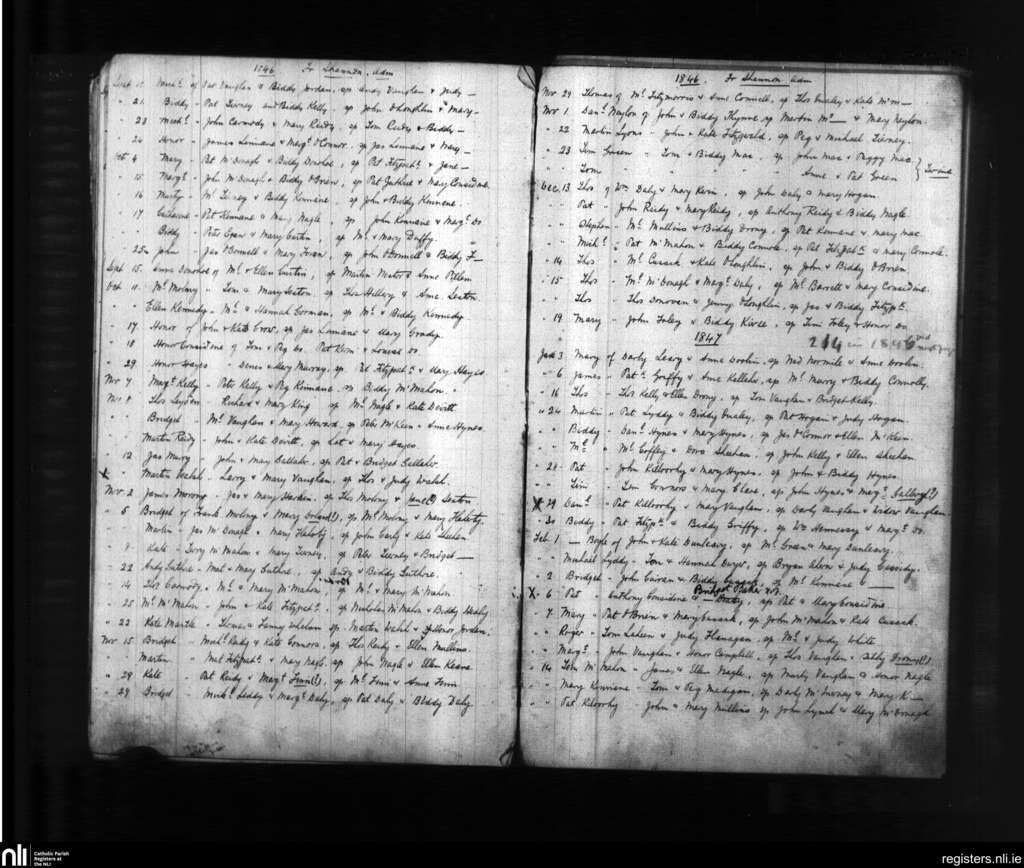 1846 Fr Shannon, Adm
Sept 15 Mich.l of Pat Vaughan & Biddy Jordan, sp Andy Vaughan & Judy —
" 21 Biddy - Pat Tierney and Biddy Kelly, sp John O'Loughlin & Mary —
" 23 Mich.l - John Carmody & Mary Reidy, sp Tom Reidy & Biddy —
" 24 Honor - James Linnane & Marg.t O'Connor, sp Jas Linnane & Mary —
Oct 4 Mary - Pat McDonagh & Biddy Donohoe, sp Pat Fitzpat.k & Jane —
" 15 Marg.t - John McDonagh & Biddy O'Brien, sp Pat Guthrie & Mary Considine
" 16 Marty - Ml. Tierney & Biddy Kinnane, sp John & Biddy Kinnane.
" 17 Pat Kinnane & Mary Nagle, sp John Kinnane & Marg.t Do
" Biddy - Pete Egan & Mary Curtin, sp Ml. & Mary Duffy
" 25 John - Jas O'Donnell & Mary Foran, sp John O'Donnell & Biddy F—
Sept 15 Anne Donohoe of Ml. & Ellen Curtin, sp Martin & Anne
Oct 11 Ml. Molony - Tom & Mary Sexton, sp Thos Hillery & Anne Sexton
" Ellen Kennedy - Ml. & Hannah Gorman, sp Ml. & Biddy Kennedy
" 17 Honor of John & Kate Crow, sp Jas Linnane & Mary Grady.
" 18 Honor Considine of Tom & Peg Do. Pat Kerin & Louisa Do
" 29 Honor Hayes - Denis & Mary Murray, sp Pat Fitzpat.k & Mary Hayes
Nov 7 Marg.t Kelly - Pete Kelly & Peg Kinnane, sp Biddy McMahon
Nov 9 Thos Leyden - Richard & Mary King sp Ml. Nagle & Kate Devitt
" Bridget - Ml. Vaughan & Mary Howard, sp Pete McKeen & Anne Hynes
" Martin Reidy - John & Kate Devitt, sp Lot & Mary Hayes
" 12 Jas Murry - John & Mary Gallaher, sp Pat & Bridget Gallaher
X " Martin Walsh - Larry & Mary Vaughan, sp Thos & Judy Walsh
Nov 2 James Moroney - Jas & Mary Harden, sp Thos Molony & Jane(?) Sexton
" 5 Bridget of Frank Molony & Mary, sp Ml. Molony & Mary Flaherty
" Martin - Jas McDonagh & Mary Flaherty, sp John Early & Kate Shehan
" Kate - Terry McMahon & Mary Tierney, sp Pete Tierney & Bridget —
" 22 Andy Guthrie - Mat & Mary Guthrie, sp Andy & Biddy Guthrie
" 14 Thos Carmody - Ml. & Mary McMahon, sp Ml. & Mary McMahon
" 25 Ml. McMahon - John & Kate Fitzpat.k, sp Michael McMahon & Biddy Healy
" 22 Kate & Fanny Whelan sp Martin Walsh & Jordan
Nov 15 Bridget - Mich.l Reidy & Kate Connors, sp Thos Reidy & Ellen Mullins
" Martin - Mat Fitzpat.k & Mary Nagle, sp John Nagle & Ellen Keane
" 29 Kate - Pat Reidy & Marg.t Finn(?), sp Ml. Finn & Anne Finn
" 29 Bridget - Mich.l Liddy & Marg.t Daly, sp Pat Daly & Biddy Daly
1846. Fr Shannon Adm
Nov 29 Thomas of Ml. Fitzmorris & Anne Connell, sp Thos & Kate McM—
Nov 1 Dan.l Neylon of John & Biddy Thynne, sp Martin Mc— & Mary Neylon
" 22 Martin Lyons - John & Kate Fitzgerald, sp Peg & Michael Tierney
" 23 Tim Green - Tom & Biddy Mac, sp John Mac & Peggy Mac
" Tom " " " Anne & Pat Green } Twins
Dec 13 Thos of Wm Daly & Mary Kerin, sp John Daly & Mary Hogan
" Pat - John Reidy & Mary Reidy, sp Anthony Reidy & Biddy Nagle
" Stephen - Ml. Mullins & Biddy Droney, sp Pat Kinnane & Mary Mac
" Mich.l - Pat McMahon & Biddy Connole, sp Pat Fitzpat.k & Mary Connole
" 14 Thos - Ml. Cusack & Kate O'Loughlin, sp John & Biddy O'Brien
" 15 Thos - Ml. McDonagh & Marg.t Daly, sp Ml. Barrett & Mary Considine
" Thos - Thos Donovan & Jenny O'Loughlin sp Jas & Biddy Fitzp.k
" 19 Mary - John Foley & Biddy Kirse, sp Tim Foley & Honor Do
1847 214 in 1846
Jan 3 Mary of Darby Leary & Anne Doolin, sp Ned Normile & Anne Doolin
" 6 James - Pat Griffy & Anne Kelleher, sp Ml. Murry & Biddy Connolly
" 16 Thos - Thos Kelly & Ellen Droney, sp Tom Vaughan & Bridget Kelly
" 24 Martin - Pat Lyddy & Biddy, sp Pat Hogan & Judy Hogan
" Biddy - Dan.l Hynes & Mary Hynes, sp Jas O'Connor & Ellen McKeen
" Ml. - Ml. Coffey & Nora Sheehan, sp John Kelly & Ellen Sheehan
" 21 Pat - John Kilroorhy & Mary Hynes, sp John & Biddy Hynes
" Tim - Tom Connors & Mary Clare, sp John Hynes & Marg.t
X 29 Dan.l - Pat Kilroorhy & Mary Vaughan, sp Darby Vaughan & Widow Vaughan
" 30 Biddy - Pat Fitzp.k & Biddy Griffy, sp Wm Hennessy & Marg.t Do
Feb 1 — Boyle of John & Kate Dunleavy, sp Ml. Green & Mary Dunleavy
" Michael Lyddy - Tom & Hannah, sp Bryan Klein & Judy Cassidy
" 2 Bridget - John & Biddy, sp Ml. Kinnane & —
X " 6 Pat - Anthony Considine & Bridget, sp Pat & Mary Considine
" 7 Mary - Pat O'Brien & Mary Cusack, sp John McMahon & Kate Cusack
" Roger - Tom Lahern & Judy Flanagan, sp Ml. & Judy White
" Marg.t - John Vaughan & Honor Campbell, sp Thos Vaughan & Abby
" 14 John McMahon - James & Ellen Nagle, sp Marty Vaughan & Honor Nagle
" Mary Kinnane - Tom & Peg Madigan, sp Darby McInerney & Mary K—
" Pat Kilroorhy - John & Mary Mullins sp John Lynch & Mary McDonagh
nli Catholic Parish
Registers at
the NLI
registers.nli.ie